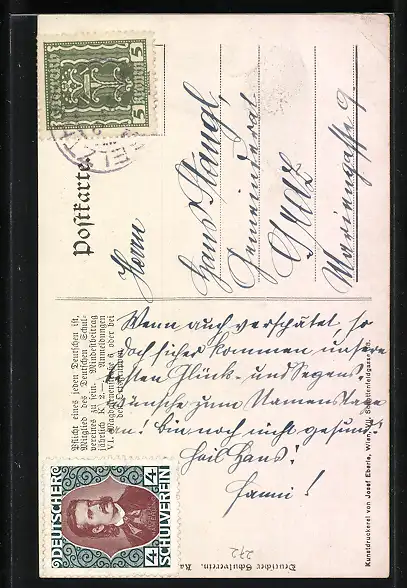 5 5
Postkarte.
Herrn
Hans Stangl,
Gemeinderat
Graz
Mariengasse 9
Pflicht eines jeden Deutschen ist,
Mitglied des Deutschen Schul-
vereines zu sein. Mindestbeitrag
jährlich K 2.—. Anmeldungen
VI. Magdalenenstraße 6 oder bei
der Ortsgruppe.
Wenn auch verspätet, so
doch sicher kommen unsere
besten Glück- und Segens-
wünsche zum Namenstage
an! Bin noch nicht gesund!
Heil Hans!
Fanni!
DEUTSCHER
4 4
SCHULVEREIN
Deutscher Schulverein.
272
Kunstdruckerei von Josef Eberle, Wien, VII. Schottenfeldgasse